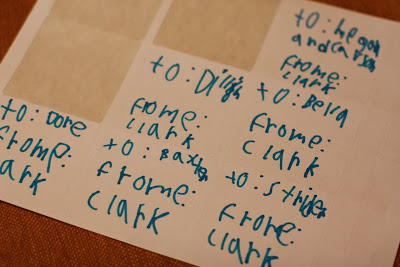 to: megan
and carson
frome:
clark
to: Dillin
frome:
clark
to: Bella
frome:
clark
to: Dore
frome:
ark
to: Baxter
frome:
clark
to: Striker
frome:
clark